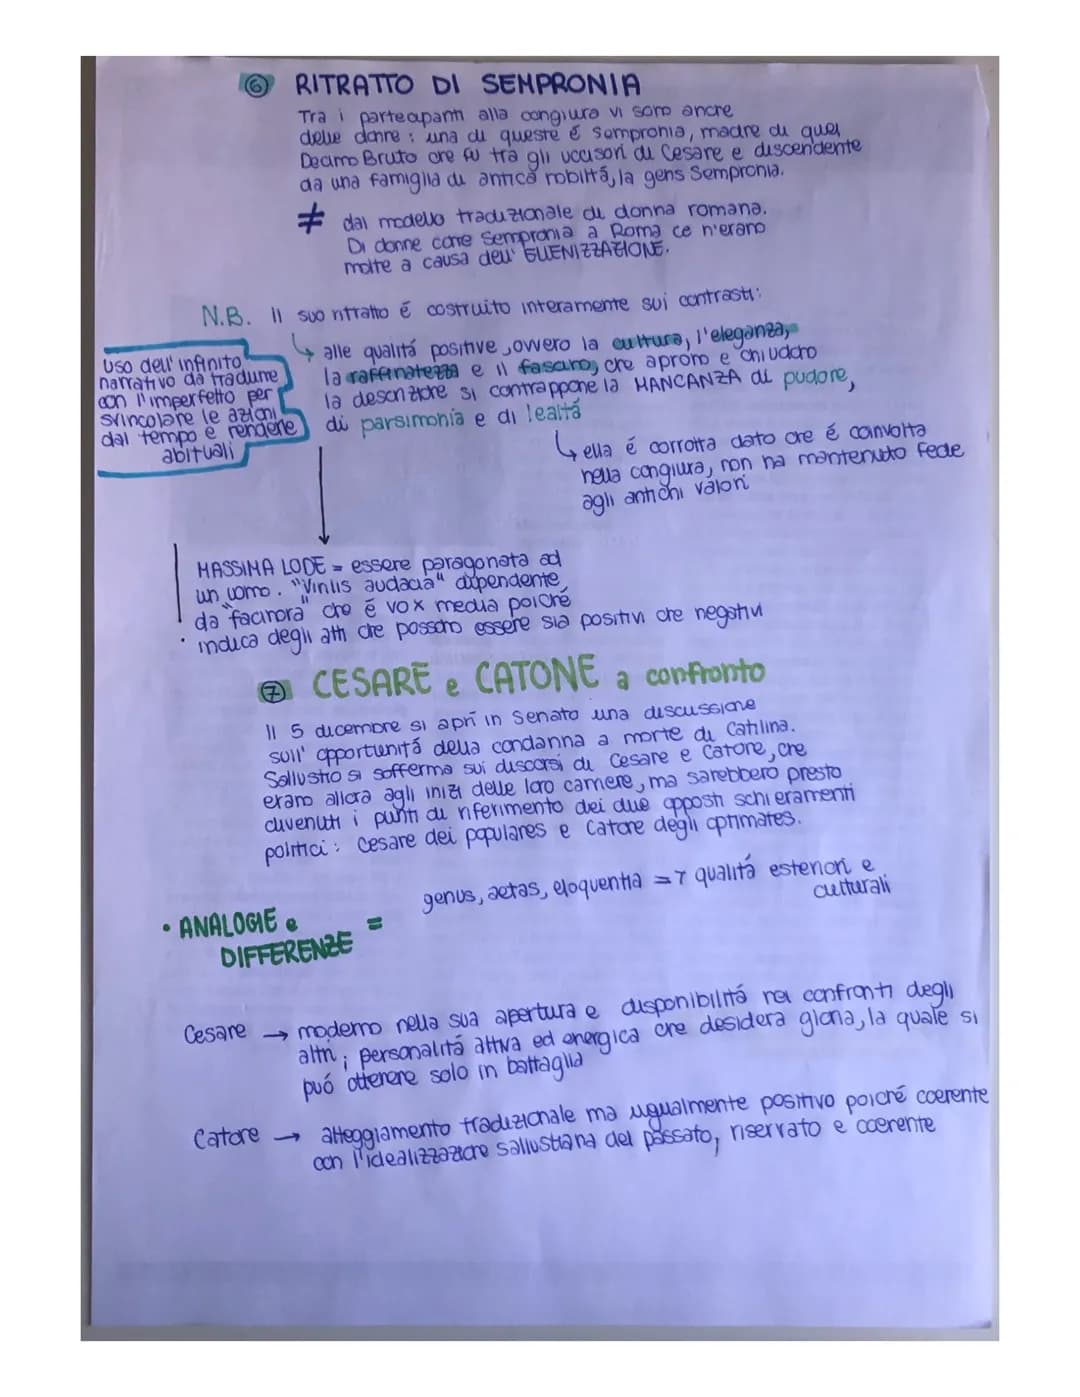 ⑥ RITRATTO DI SEMPRONIA
Tra i partecipanti alla congiura vi sono anche
delle donne : una di queste é Sempronia, madre di quel
Decimo Bruto che fu tra gli uccisori di Cesare e discendente
da una famiglia di antica nobiltá, la gens Sempronia.
≠ dal modello tradizionale di donna romana.
Di donne come Sempronia a Roma ce n'erano
molte a causa dell' ELLENIZZAZIONE.
N.B. Il suo ritratto é costruito interamente sui contrasti:
↳ alle qualitá positive, ovvero la cultura, l'eleganza,
la raffinatezza e il fascino, che aprono e chiudono
la descrizione si contrappone la MANCANZA di pudore,
di parsimonia e di lealtá
Uso dell'infinito
narrativo da tradurre
con l'imperfetto per
svincolare le azioni
dal tempo e renderle
abituali
↳ ella é corrotta dato che é coinvolta
nella congiura, non ha mantenuto fede
agli antichi valori
MASSIMA LODE = essere paragonata ad
un uomo. "Virilis audacia" dipendente
da "facinora" che é vox media poiché
indica degli atti che possono essere sia positivi che negativi
⑦ CESARE e CATONE a confronto
Il 5 dicembre si aprí in Senato una discussione
sull' opportunitá della condanna a morte di Catilina.
Sallustio si sofferma sui discorsi di Cesare e Catone, che
erano allora agli inizi delle loro carriere, ma sarebbero presto
divenuti i punti di riferimento dei due opposti schieramenti
politici : Cesare dei populares e Catone degli optimates.
• ANALOGIE e
DIFFERENZE =
genus, aetas, eloquentia => qualitá esteriori e
culturali
Cesare → moderno nella sua apertura e disponibilitá nei confronti degli
altri ; personalitá attiva ed energica che desidera gloria, la quale si
puó ottenere solo in battaglia
Catone → atteggiamento tradizionale ma ugualmente positivo poiché coerente
con l'idealizzazione sallustiana del passato, riservato e coerente